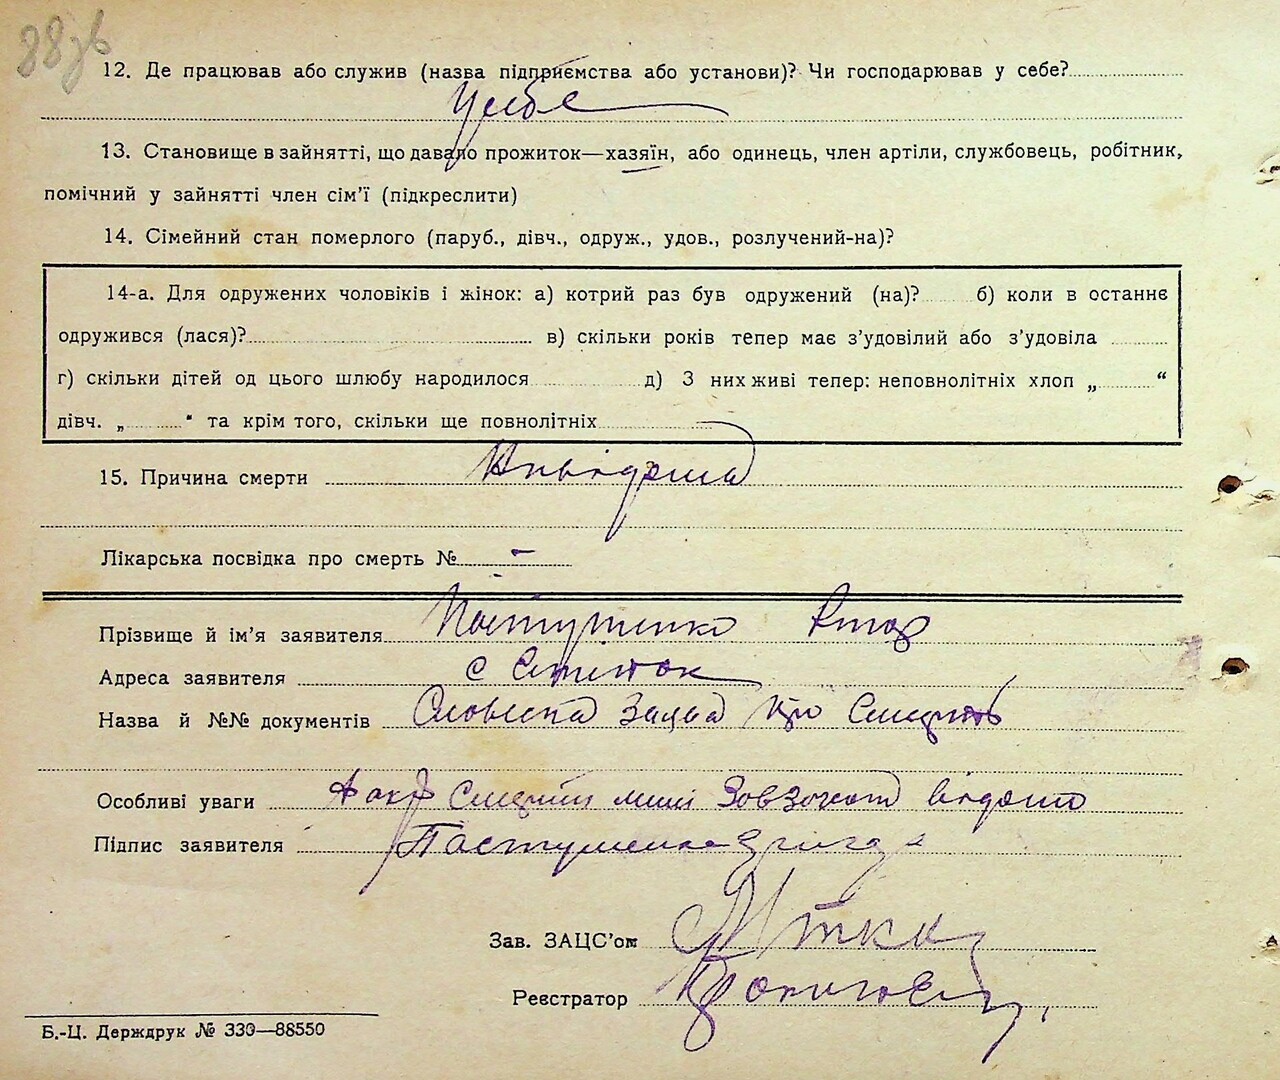 88зв
12. Де працював або служив (назва підприємства або установи)? Чи господарював у себе?
У себе
13. Становище в зайнятті, що давало прожиток—хазяїн, або одинець, член артіли, службовець, робітник,
помічний у зайнятті член сім’ї (підкреслити)
14. Сімейний стан померлого (паруб., дівч., одруж., удов., розлучений-на)?
14-а. Для одружених чоловіків і жінок: а) котрий раз був одружений (на)? б) коли в останнє
одружився (лася)? в) скільки років тепер має з’удовілий або з’удовіла
г) скільки дітей од цього шлюбу народилося д) З них живі тепер: неповнолітніх хлоп „ “
дівч. „ “ та крім того, скільки ще повнолітніх
15. Причина смерти
Лікарська посвідка про смерть № -
Прізвище й ім’я заявителя
Адреса заявителя с
Назва й №№ документів Словесна Заява про Смерть
Особливі уваги Факт Смерти мині відомо
Підпис заявителя
Зав. ЗАЦС’ом
Реєстратор
Б.-Ц. Держдрук № 330—88550